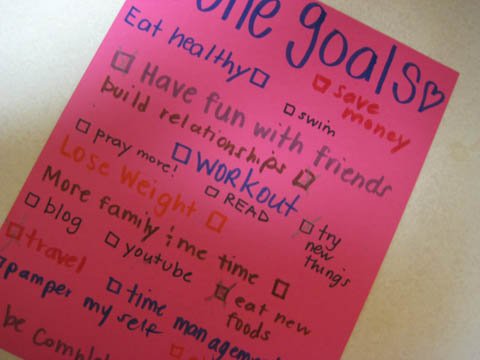 goals
Eat healthy
save
money
swim
Have fun with friends
build relationships
pray more!
WORKOUT
READ
Lose Weight
try
new
things
More family time
blog
youtube
eat new
foods
travel
time management
pamper my self
be